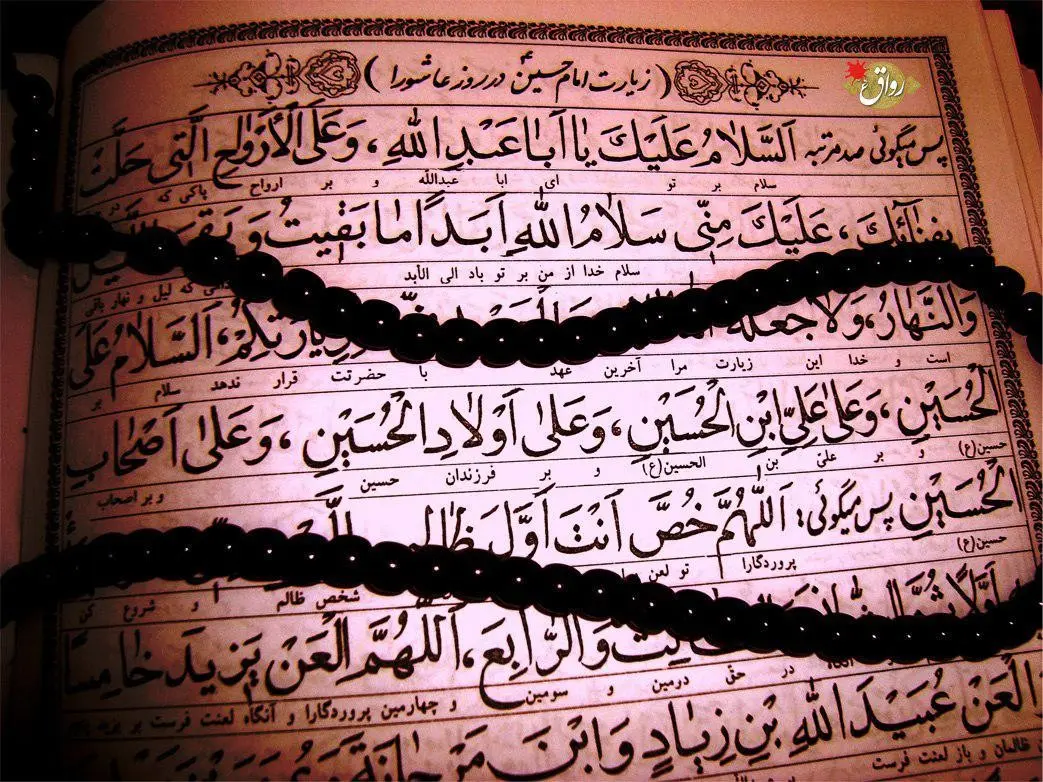 رواق
( زیارت امام حسین در روز عاشورا )
پس میگوئی صد مرتبه اَلسَّلامُ عَلَیْكَ یا اَبا عَبْدِ اللهِ، وَعَلَی الْاَرْواحِ الَّتی حَلَّتْ
سلام بر تو ای ابا عبدالله و بر ارواح پاکی که در
بِفِنائِكَ، عَلَیْكَ مِنّی سَلامُ اللهِ اَبَدًا ما بَقیتُ وَ بَقِیَ
سلام خدا از من بر تو باد الی الأبد که لیل و نهار باقی
وَالنَّهارُ، وَلا جَعَلَهُ لِزِیارَتِکُمْ، اَلسَّلامُ عَلَی
است و خدا این زیارت مرا آخرین عهد با حضرتت قرار ندهد سلام بر
الْحُسَیْنِ، وَعَلی عَلِیِّ ابْنِ الْحُسَیْنِ، وَعَلی اَوْلادِ الْحُسَیْنِ، وَعَلی اَصْحابِ
حسین(ع) و بر علیّ بن الحسین(ع) و بر فرزندان حسین و بر اصحاب
الْحُسَیْنِ پس میگوئی: اَللّهُمَّ خُصَّ اَنْتَ اَوَّلَ ظالِمٍ
حسین(ع) پروردگارا تو لعن شخص ظالم و شروع کن
اَوَّلًا ثُمَّ وَالرّابِعَ، اَللّهُمَّ الْعَنْ یَزیدَ خامِسًا
در حقّ دومین و سومین و چهارمین پروردگارا و آنگاه لعنت فرست بر یزید
الْعَنْ عُبَیْدَ اللهِ بْنَ زِیادٍ وَ ابْنَ مَرْجانَةَ
ظالمان و باز لعنت فرست